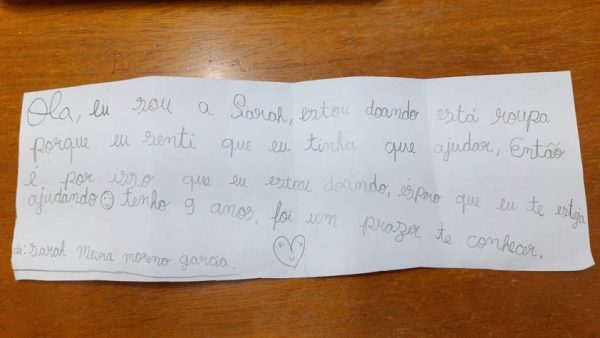 Ola, eu sou a Sarah, estou doando está roupa
porque eu senti que eu tinha que ajudar, Então
é por isso que eu estou doando, ispero que eu te esteja
ajudando☺ tenho 9 anos, foi um prazer te conhecer.
de: Sarah Meira moreno garcia.